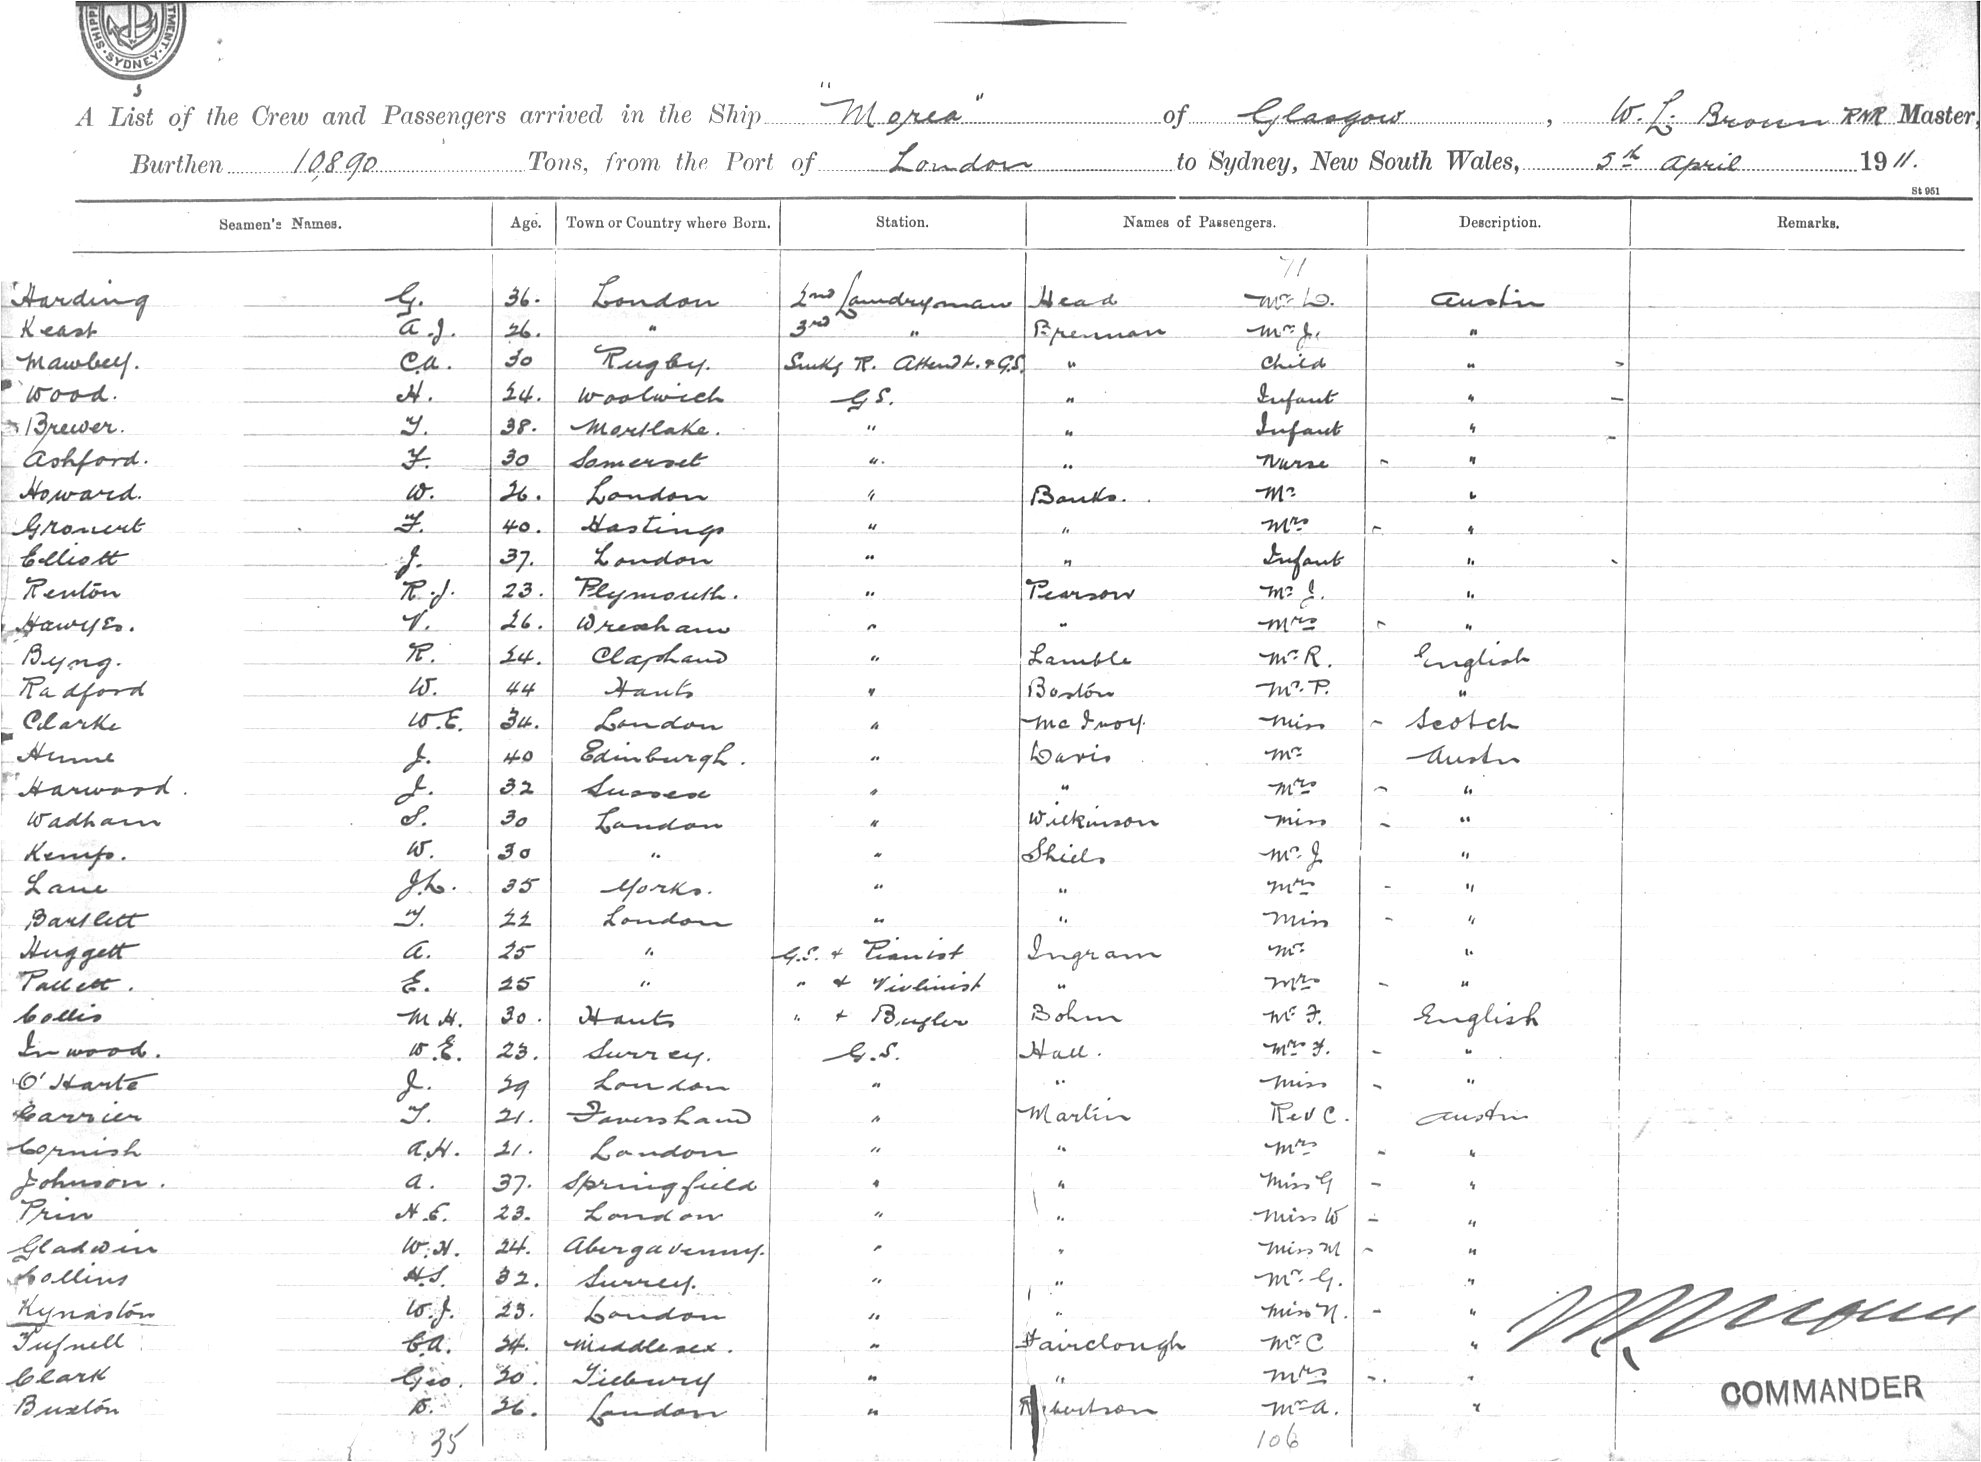 SHIPPI TMENT. SYDNEY
A List of the Crew and Passengers arrived in the Ship "Morea" of Glasgow, W. L. Brown RNR Master,
Burthen 10,890 Tons, from the Port of London to Sydney, New South Wales, 5th April 1911.
St 951
Seamen's Names. Age. Town or Country where Born. Station. Names of Passengers. Description. Remarks.
71
Harding G. 36. London 2nd Laundryman Head Mr D. Austrn
Keast A.J. 26. " 3rd " Brennan Mrs J. "
Mawbey. C.A. 30 Rugby. Smkg R. Attendt. & G.S. " Child "
Wood. H. 24. Woolwich G.S. " Infant "
Brewer. T. 38. Mortlake. " " Infant "
Ashford. F. 30 Somerset " " Nurse - "
Howard. W. 26. London " Banks. Mr "
Gronert F. 40. Hastings " " Mrs - "
Elliott J. 37. London " " Infant "
Renton R.J. 23. Plymouth. " Pearson Mr J. "
Hawyes. V. 26. Wrexham " " Mrs - "
Byng. R. 24. Clapham " Lamble Mr R. English
Radford W. 44 Hants " Boston Mr P. "
Clarke W.E. 34. London " McIvoy. Miss - Scotch
Hume J. 40 Edinburgh. " Davis Mr Austrn
Harwood. J. 32 Sussex " " Mrs - "
Wadham S. 30 London " Wilkinson Miss - "
Kemp. W. 30 " " Shiels Mr J. "
Lane J.L. 35 Yorks. " " Mrs - "
Bartlett T. 22 London " " Miss - "
Huggett A. 25 " G.S. & Pianist Ingram Mr "
Pallett. E. 25 " " & Violinist " Mrs - "
Collis M.H. 30. Hants " & Bugler Bohm Mr F. English
Inwood. W.E. 23. Surrey. G.S. Hall. Mrs F. - "
O'Harte J. 29 London " " Miss - "
Carrier T. 21. Faversham " Martin Rev C. Austrn
Cornish A.H. 21. London " " Mrs - "
Johnson. A. 37. Springfield " " Miss G - "
Prin H.E. 23. London " " Miss W - "
Gladwin W.H. 24. Abergavenny. " " Miss M - "
Collins H.S. 32. Surrey. " " Mr G. "
Kynaston W.J. 23. London " " Miss N. - "
Tufnell C.A. 24. Middlesex. " Fairclough Mr C "
Clark Geo. 30. Tilbury " " Mrs - "
Buxton D. 26. London " Robertson Mr A. "
COMMANDER
35 106